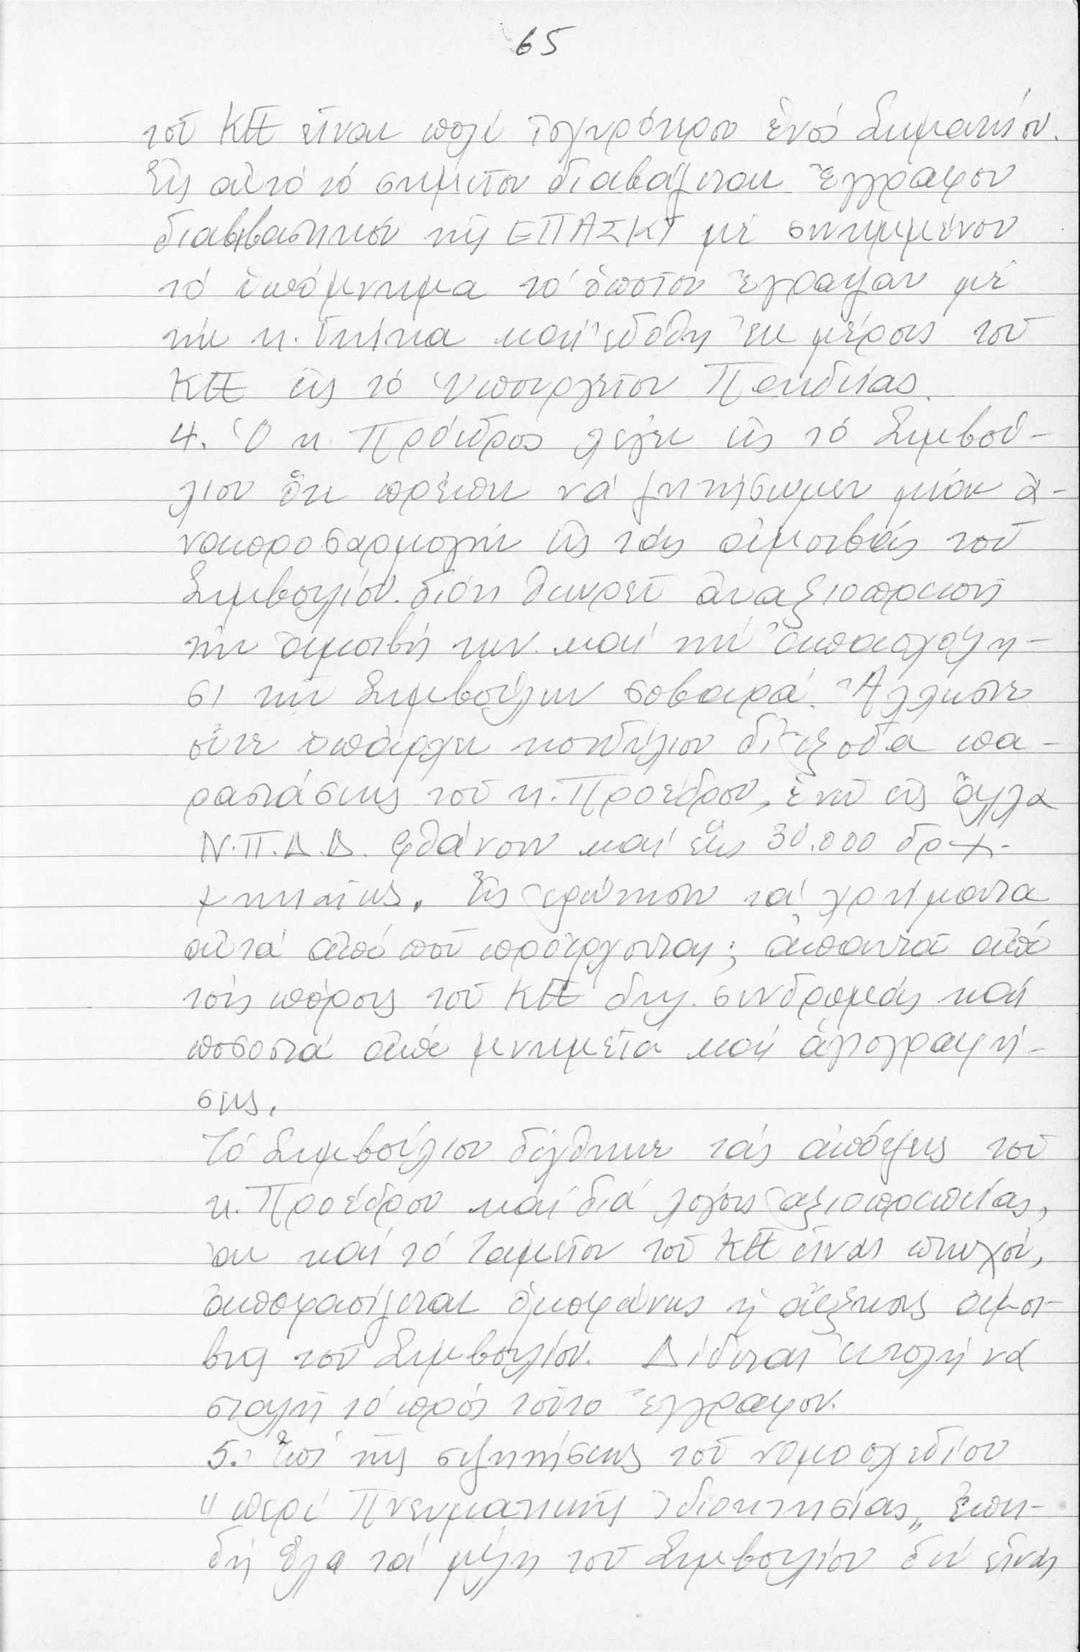 65
τοῦ ΚΗ εἶναι πολύ ἰσχυρότερον ἑνός Σωματείου.
Εἰς αὐτό τό σημεῖον διαβάζεται ἔγγραφον
διαβιβαστικόν τῆς ΕΠΑΣΚΤ μέ συνημμένον
τό ὑπόμνημα τό ὁποῖον ἔγραψαν μέ
τήν κ. καί ἐδόθη ἐκ μέρους τοῦ
ΚΗ εἰς τό Ὑπουργεῖον Παιδείας.
4. Ὁ κ. Πρόεδρος λέγει εἰς τό Συμβού-
λιον ὅτι πρέπει νά ζητήσωμεν μίαν ἀ-
ναπροσαρμογήν εἰς τάς ἀμοιβάς τοῦ
Συμβουλίου διότι θεωρεῖ ἀναξιοπρεπῆ
τήν ἀμοιβή των καί τήν ἀπασχόλη-
σι τῶν Συμβούλων σοβαρά. Ἄλλωστε
οὔτε ὑπάρχει κονδύλιον δι' ἔξοδα πα-
ραστάσεως τοῦ κ. Προέδρου, ἐνῶ εἰς ἄλλα
Ν.Π.Δ.Δ. φθάνουν καί ἕως 30.000 δρχ.
μηνιαίως. Εἰς ἐρώτησιν τά χρήματα
αὐτά ἀπό ποῦ προέρχονται; ἀπαντᾶ ἀπό
τούς πόρους τοῦ ΚΗ δηλ. συνδρομάς καί
ποσοστά ἀπό μνημεῖα καί ἁγιογραφή-
σεις.
Τό Συμβούλιον δέχθηκε τάς ἀπόψεις τοῦ
κ. Προέδρου καί διά λόγους ἀξιοπρεπείας,
ἄν καί τό Ταμεῖον τοῦ ΚΗ εἶναι πτωχόν,
ἀποφασίζεται ὁμοφώνως ἡ αὔξησις ἀμοι-
βῆς τοῦ Συμβουλίου. Δίδεται ἐντολή νά
σταλῆ τό πρός τοῦτο ἔγγραφον.
5. Ἐπί τῆς συζητήσεως τοῦ νομοσχεδίου
"περί Πνευματικῆς Ἰδιοκτησίας", ἐπει-
δή ὅλα τά μέλη τοῦ Συμβουλίου δέν εἶναι